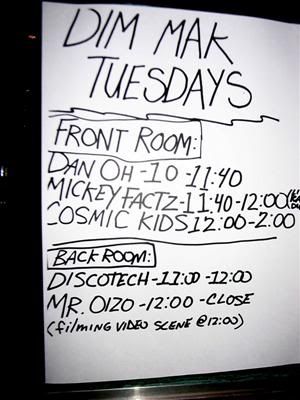 DIM MAK
TUESDAYS
FRONT ROOM:
DAN OH -10 -11:40
MICKEY FACTZ -11:40 -12:00
COSMIC KIDS 12:00 -2:00
BACK ROOM:
DISCOTECH -11:00 -12:00
MR. OIZO -12:00 -CLOSE
(filming VIDEO SCENE @12:00)